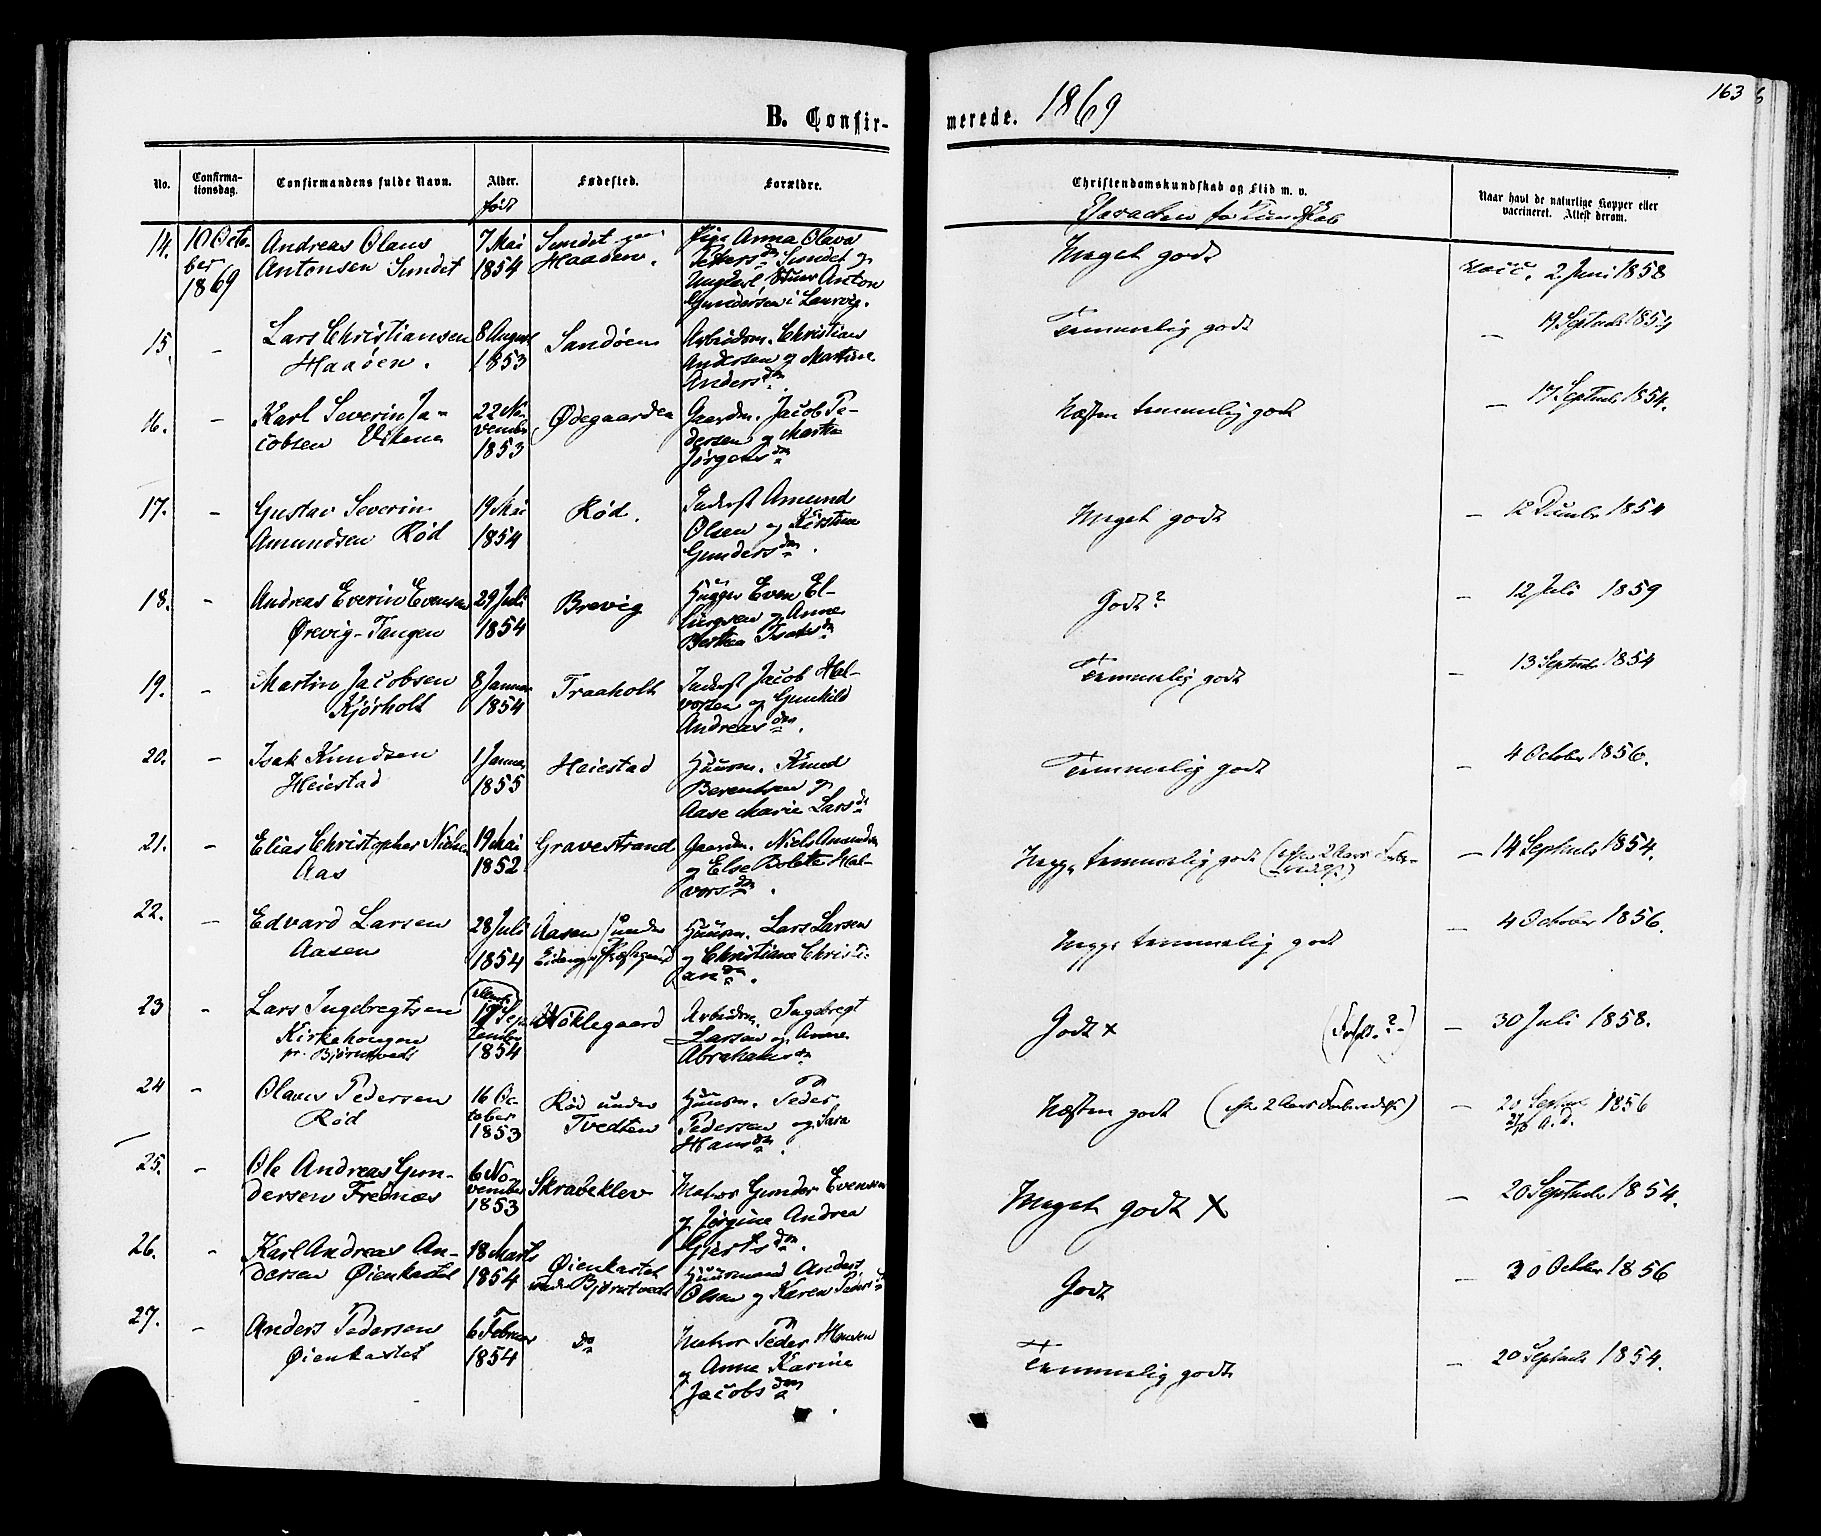 163
B. Confir-
merede. 1869
No.
Confirma-
tionsdag.
Confirmandens fulde Navn.
Alder.
født
Fødested.
Forældre.
Christendomskundskab og Flid m. v.
Karacteer for Kundskab
Naar havt de naturlige Kopper eller
vaccineret. Attest derom.
14.
10 Octo-
ber
1869
Andreas Olaus
Antonsen Sundet
7 Mai
1854
Sundet
Haaøen.
Pige Anna Olava
Peders dr Sundet og
Ungkarl Anton
Gundersen i Laurvig.
Meget godt
vacc. 2 Juni 1858
15.
-
Lars Christiansen
Haaøen.
8 August
1853
Sandøen
Arbeidsm. Christian
Andersen og Martine
Anders dr
Temmelig godt
- 19 Septbr 1854
16.
-
Karl Severin Ja-
cobsen Vikene
22 No-
vember
1853
Ødegaarden
Gaardm. Jacob Pe-
dersen og Marthe
Jørgens dr
Næsten temmelig godt
- 17 Septbr 1854.
17.
-
Gustav Severin
Amundsen Rød
19 Mai
1854
Rød.
Inderst Amund
Olsen og Kirstine
Gunders dr.
Meget godt
- 12 1854
18.
-
Andreas Everin Evensen
Ørevig-Tangen
29 Juli
1854
Brevig
Even El-
og Anne
Berthea Isaks dr
Godt?
- 12 Juli 1859
19.
-
Martin Jacobsen
Kjørholt
8 Januar
1854
Traaholt
Inderst Jacob Hal-
vorsen og Gunhild
Andreas dr.
Temmelig godt
- 13 Septbr 1854
20.
-
Isak Knudsen
Heiestad
1 Januar
1855
Heiestad
Huusm. Knud
Berentsen og
Aase Marie Lars dr
Temmelig godt
- 4 October 1856.
21.
-
Elias Christopher Nielsen
Aas
19 Mai
1852
Gravestrand
Gaardm. Niels Amundsen
og Else Bolette Hal-
vors dr.
temmelig godt (efter 2 Aars Forbe-
redelse)
- 14 Septbr 1854.
22.
-
Edvard Larsen
Aasen
28 Juli
1854
Aasen under
Eidanger Præstegaard
Huusm. Lars Larsen
og Christiane Christi-
ans dr.
temmelig godt
- 4 October 1856.
23
-
Lars Ingebregtsen
Kirkehougen
pr. Bjørntvedt
17 Sep-
tember
1854
Nøklegaard
Arbeidsm. Ingebregt
Larsen og Anne
Abrahams dr
Godt x
- 30 Juli 1858.
24
-
Olaus Pedersen
Rød
16 Oc-
tober
1853
Rød under
Tvedten
Huusm. Peder
Pedersen og Sara
Hans dr.
Næsten godt (efter 2 Aars Forberedelse)
- 20 Septbr 1856
25.
-
Ole Andreas Gun-
dersen Frednæs
6 No-
vember
1853
Skrabeklev
Matros Gunder Evensen
og Jørgine Andrea
Gjerts dr.
Meget godt x
- 20 Septbr 1854.
26.
-
Karl Andreas An-
dersen Øienkastet
18 Marts
1854
Øienkastet
under Bjørntvedt
Huusmand Anders
Olsen og Karen Peders dr
Godt
- 30 October 1856
27.
-
Anders Pedersen
Øienkastet
6 Februar
1854
do
Matros Peder Hansen
og Anne Karine
Jacobs dr.
Temmelig godt
- 20 Septbr 1854.